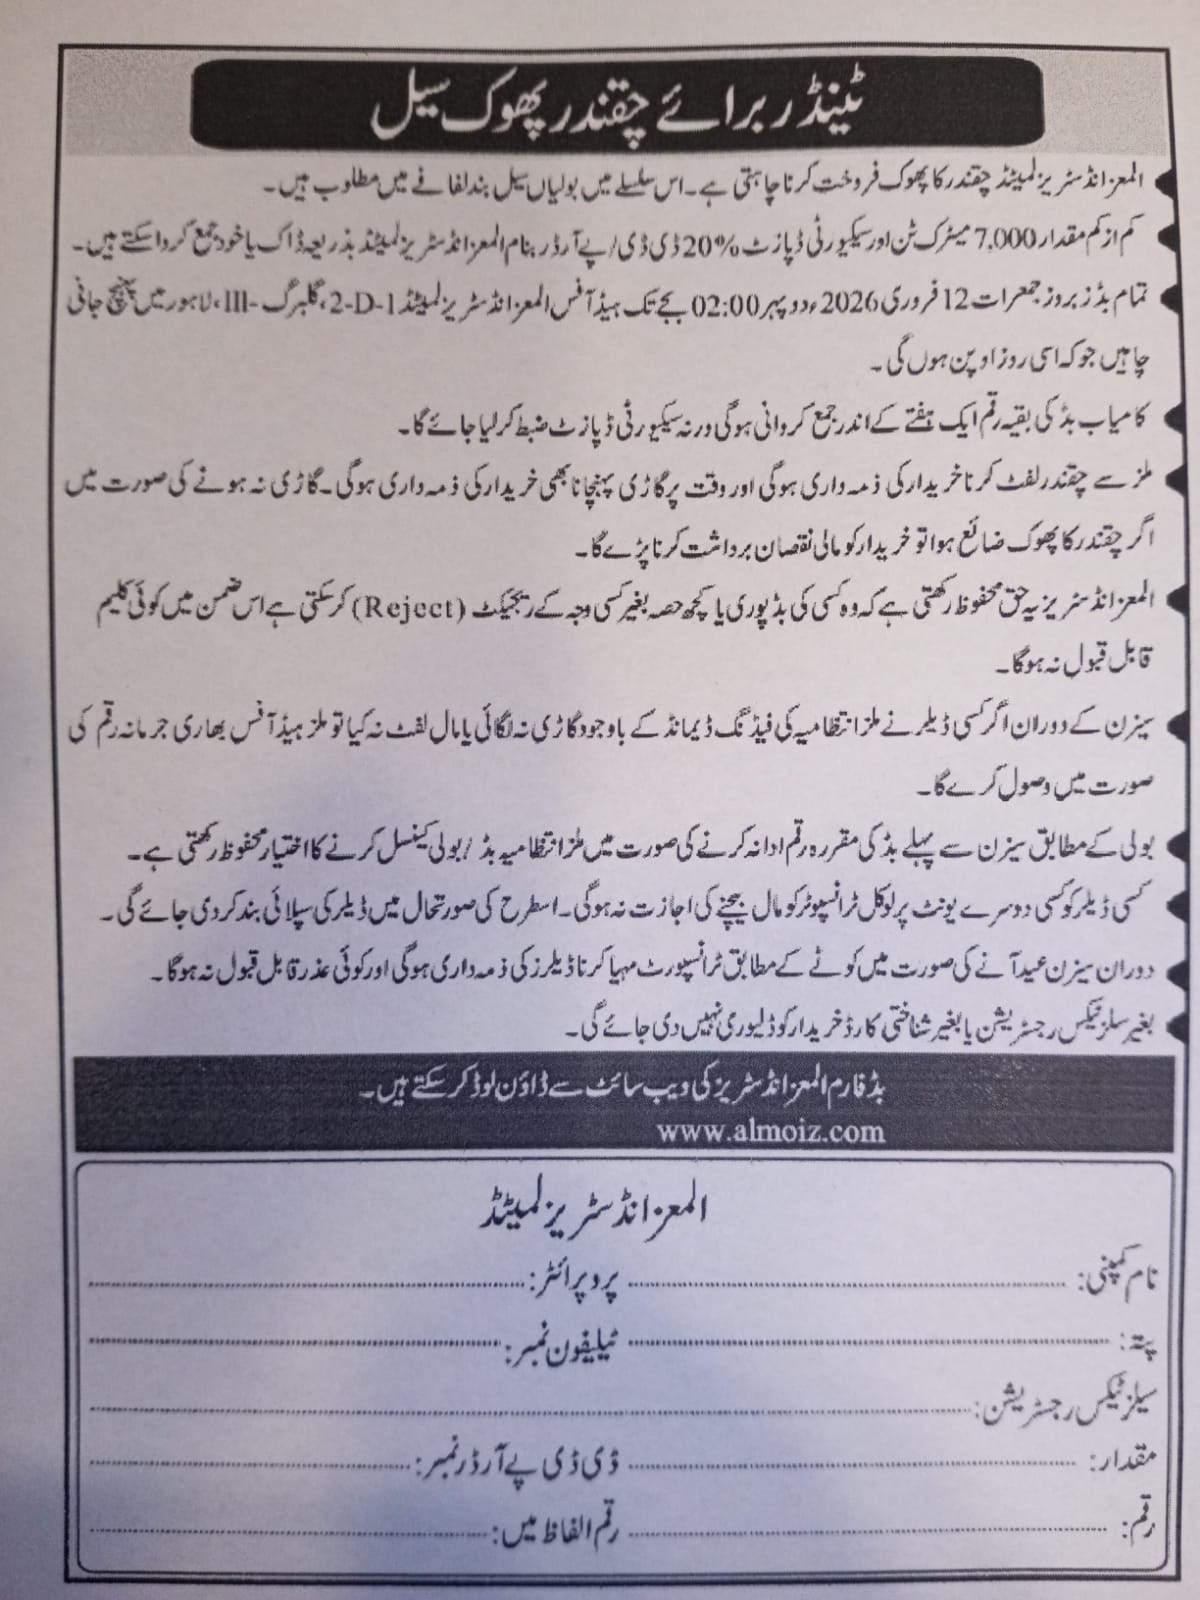 ٹینڈر برائے چقندر پھوک سیل
المعز انڈسٹریز لمیٹڈ چقندر کا پھوک فروخت کرنا چاہتی ہے۔ اس سلسلے میں بولیاں سیل بند لفافے میں مطلوب ہیں۔
کم از کم مقدار 7,000 میٹرک ٹن اور سیکیورٹی ڈپازٹ %20 ڈی ڈی/پے آرڈر بنام المعز انڈسٹریز لمیٹڈ بذریعہ ڈاک یا خود جمع کروا سکتے ہیں۔
تمام بڈز بروز جمعرات 12 فروری 2026ء دوپہر 02:00 بجے تک ہیڈ آفس المعز انڈسٹریز لمیٹڈ 2-D-1، گلبرگ -III، لاہور میں پہنچ جانی
چاہیں جو کہ اسی روز اوپن ہوں گی۔
کامیاب بڈ کی بقیہ رقم ایک ہفتے کے اندر جمع کروانی ہوگی ورنہ سیکیورٹی ڈپازٹ ضبط کر لیا جائے گا۔
ملز سے چقندر لفٹ کرنا خریدار کی ذمہ داری ہوگی اور وقت پر گاڑی پہنچانا بھی خریدار کی ذمہ داری ہوگی۔ گاڑی نہ ہونے کی صورت میں
اگر چقندر کا پھوک ضائع ہوا تو خریدار کو مالی نقصان برداشت کرنا پڑے گا۔
المعز انڈسٹریز یہ حق محفوظ رکھتی ہے کہ وہ کسی کی بڈ پوری یا کچھ حصہ بغیر کسی وجہ کے ریجیکٹ (Reject) کر سکتی ہے اس ضمن میں کوئی کلیم
قابل قبول نہ ہوگا۔
سیزن کے دوران اگر کسی ڈیلر نے ملز انتظامیہ کی فیڈنگ ڈیمانڈ کے باوجود گاڑی نہ لگائی یا مال لفٹ نہ کیا تو ملز ہیڈ آفس بھاری جرمانہ رقم کی
صورت میں وصول کرے گا۔
بولی کے مطابق سیزن سے پہلے بڈ کی مقررہ رقم ادا نہ کرنے کی صورت میں ملز انتظامیہ بڈ / بولی کینسل کرنے کا اختیار محفوظ رکھتی ہے۔
کسی ڈیلر کو کسی دوسرے یونٹ پر لوکل ٹرانسپورٹر کو مال بیچنے کی اجازت نہ ہوگی۔ اسطرح کی صورتحال میں ڈیلر کی سپلائی بند کردی جائے گی۔
دوران سیزن عید آنے کی صورت میں کوٹے کے مطابق ٹرانسپورٹ مہیا کرنا ڈیلرز کی ذمہ داری ہوگی اور کوئی عذر قابل قبول نہ ہوگا۔
بغیر سیلز ٹیکس رجسٹریشن یا بغیر شناختی کارڈ خریدار کو ڈلیوری نہیں دی جائے گی۔
بڈ فارم المعز انڈسٹریز کی ویب سائٹ سے ڈاؤن لوڈ کر سکتے ہیں۔
www.almoiz.com
المعز انڈسٹریز لمیٹڈ
نام کمپنی: پروپرائٹر:
پتہ: ٹیلیفون نمبر:
سیلز ٹیکس رجسٹریشن:
مقدار: ڈی ڈی پے آرڈر نمبر:
رقم: رقم الفاظ میں: